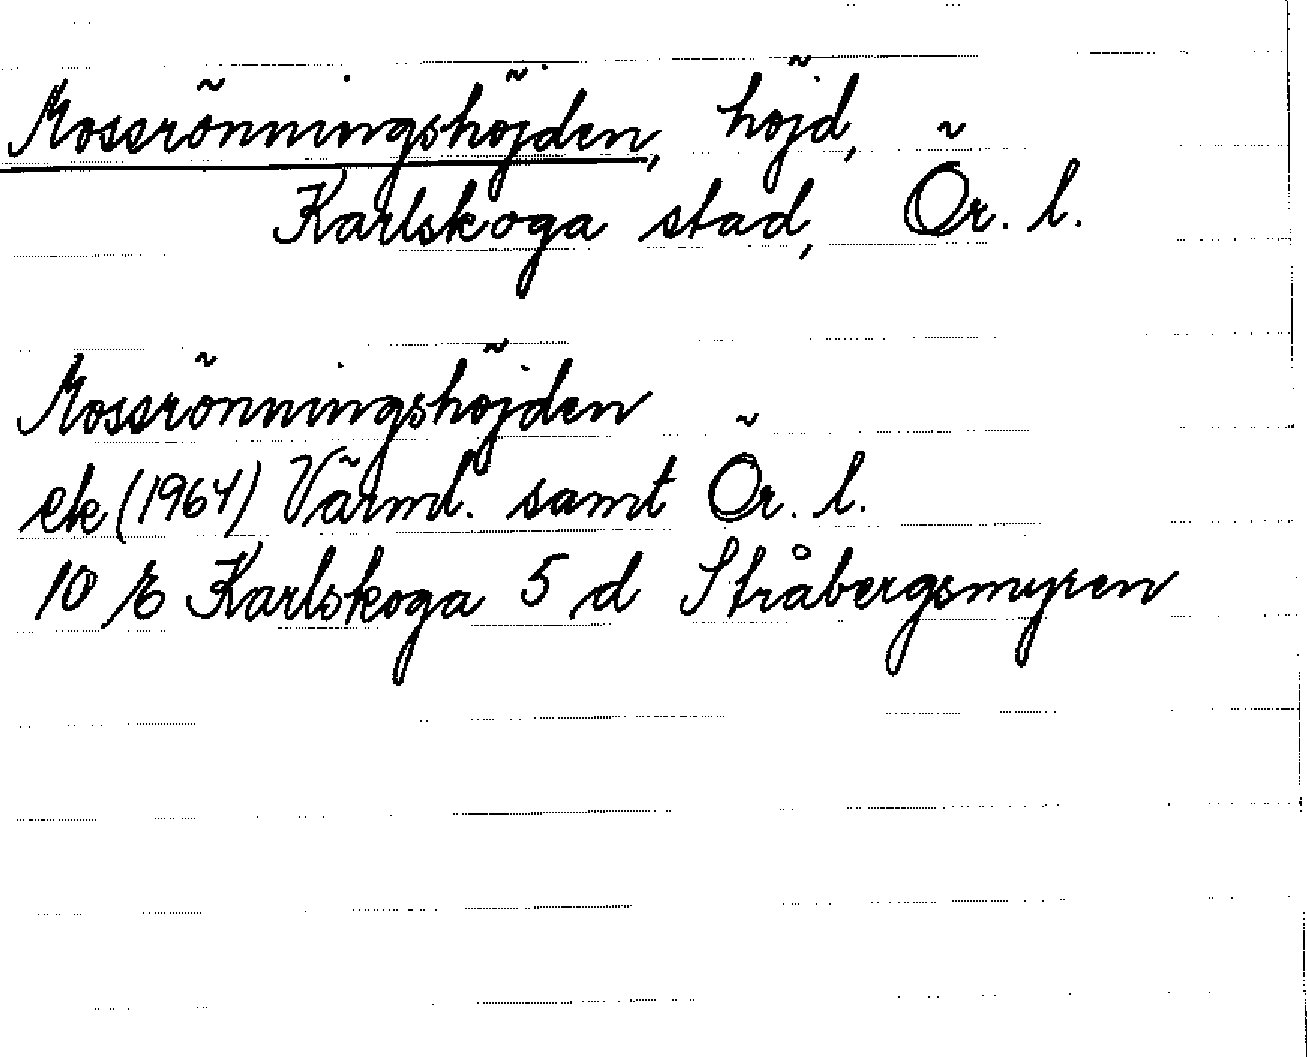 Mossrönningshöjden, höjd,
Karlskoga stad, Ör. l.
Mossrönningshöjden
ek (1964) Värml. samt Ör. l.
10 E Karlskoga 5 d Stråbergsmyren